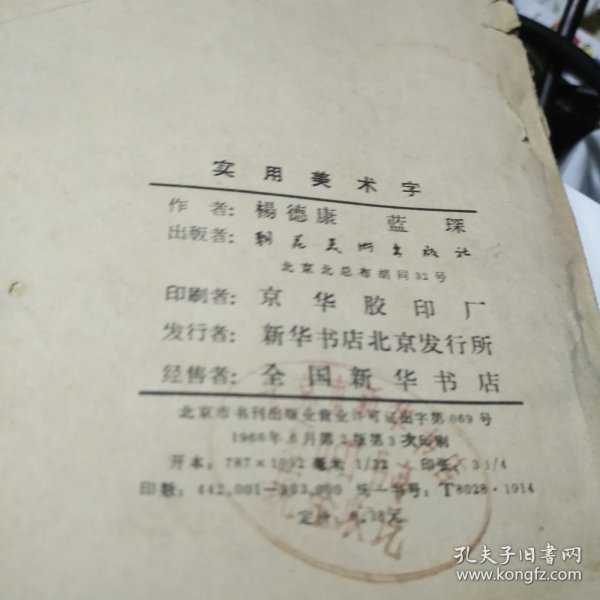 实用美术字
作者：楊德康 蓝琛
出版者：朝花美術出版社
北京北总布胡同32号
印刷者：京华胶印厂
发行者：新华书店北京发行所
经售者：全国新华书店
北京市书刊出版业营业许可证出字第069号
1966年 月第2版第3次印刷
开本：787×1092毫米 1/32 印张：3 1/4
印数：442,001— 统一书号：T8028·1914
定价：0.38元
孔夫子旧书网
www.kongfz.com